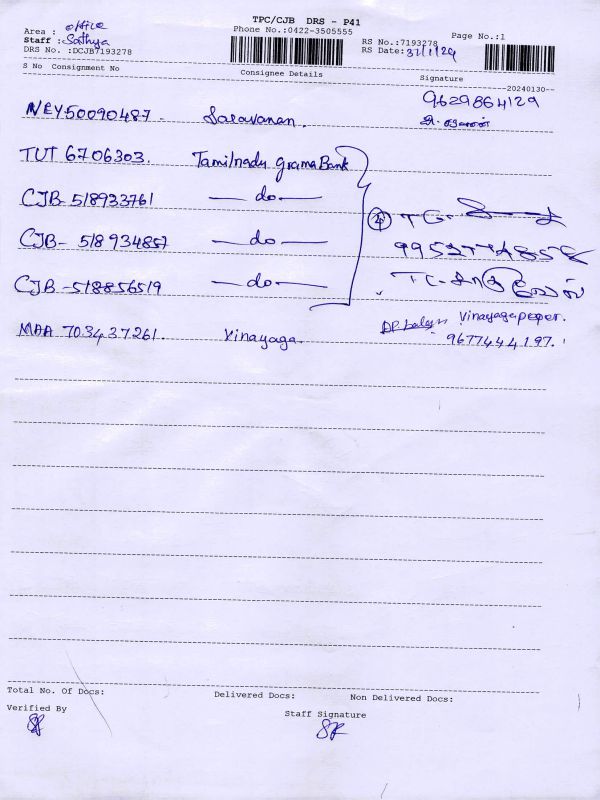 TPC/CJB DRS - P41
Phone No.:0422-3505555
Page No.:1
Area : office
Staff : Sathya
DRS No. :DCJB7193278
RS No.:7193278
RS Date:31/1/24
S No Consignment No Consignee Details Signature
20240130--
NEY50090487. Saravanan. 9629864129
TUT 6706303. Tamilnadu grama Bank
CJB-518933761 —do—
CJB- 518934857 —do—
CJB -518856519 —do—
MAA 703437261. Vinayaga. Vinayagapeper.
9677444197.
Total No. Of Docs: Delivered Docs: Non Delivered Docs:
Verified By Staff Signature